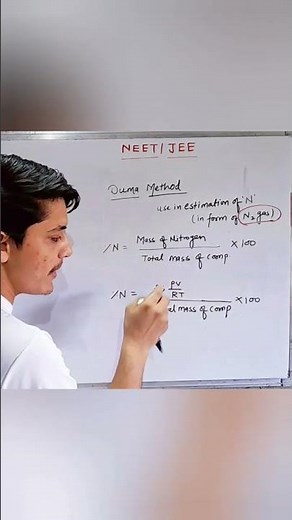 NEET/JEE
Duma Method
use in estimation of 'N'
(in form of N₂ gas)
/N = Mass of Nitrogen / Total mass of comp. × 100
/N = PV / RT × 100
al mass of comp